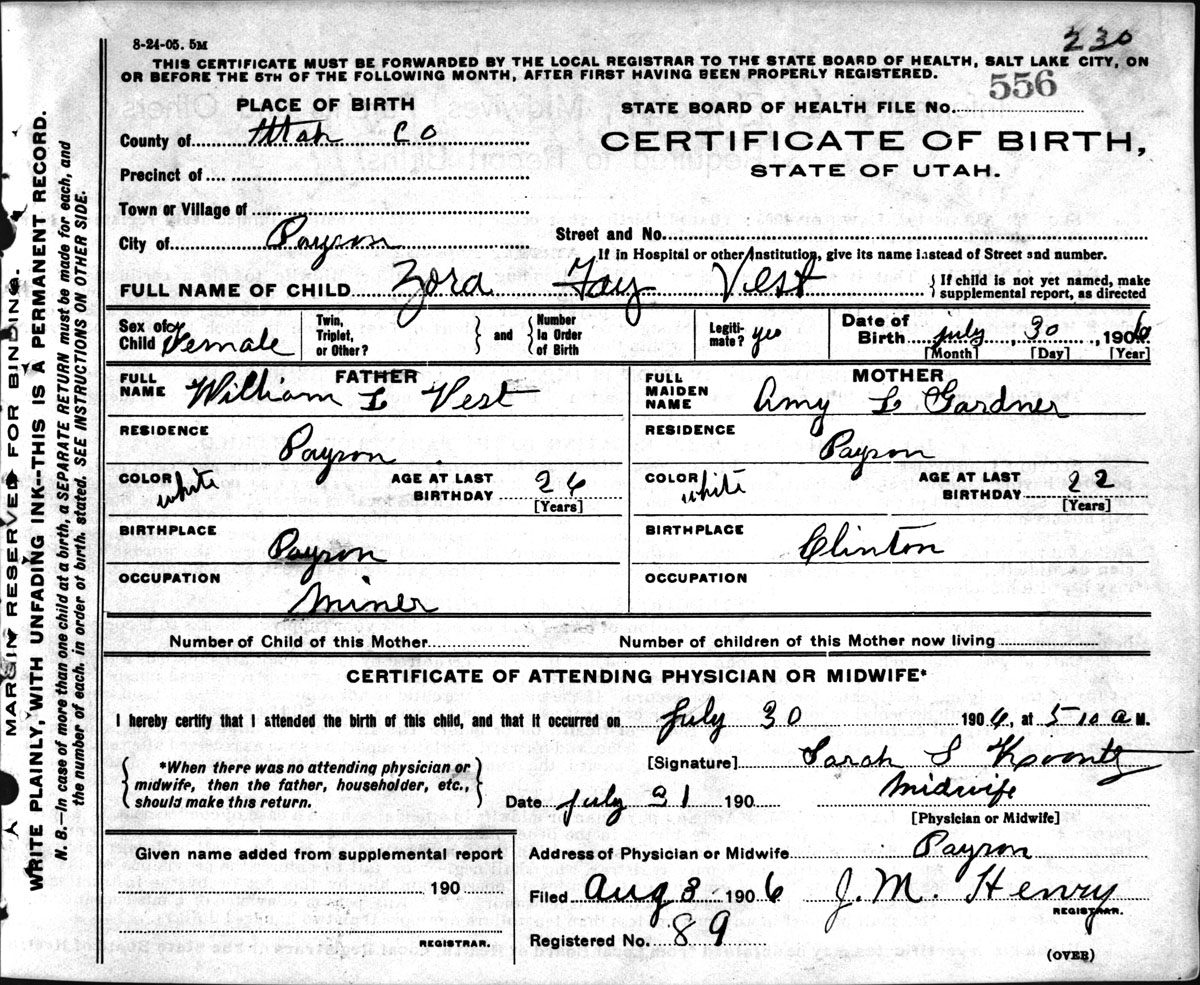 8-24-05. 5M
230
THIS CERTIFICATE MUST BE FORWARDED BY THE LOCAL REGISTRAR TO THE STATE BOARD OF HEALTH, SALT LAKE CITY, ON
OR BEFORE THE 5TH OF THE FOLLOWING MONTH, AFTER FIRST HAVING BEEN PROPERLY REGISTERED.
PLACE OF BIRTH
STATE BOARD OF HEALTH FILE No. 556
County of Utah Co
CERTIFICATE OF BIRTH,
STATE OF UTAH.
Precinct of
Town or Village of
City of Payson
Street and No.
If in Hospital or other Institution, give its name instead of Street and number.
FULL NAME OF CHILD Zora Fay Vest
{ If child is not yet named, make
supplemental report, as directed
Sex of Child Female
Twin, Triplet, or Other?
and
Number in Order of Birth
Legitimate? yes
Date of Birth july, 30, 1906
[Month] [Day] [Year]
FATHER
FULL NAME William L Vest
MOTHER
FULL MAIDEN NAME Amy L Gardner
RESIDENCE
Payson
RESIDENCE
Payson
COLOR white
AGE AT LAST BIRTHDAY 26
[Years]
COLOR white
AGE AT LAST BIRTHDAY 22
[Years]
BIRTHPLACE
Payson
BIRTHPLACE
Clinton
OCCUPATION
Miner
OCCUPATION
Number of Child of this Mother
Number of children of this Mother now living
CERTIFICATE OF ATTENDING PHYSICIAN OR MIDWIFE*
I hereby certify that I attended the birth of this child, and that it occurred on july 30 1906, at 5 10 a M.
*When there was no attending physician or
midwife, then the father, householder, etc.,
should make this return.
[Signature] Sarah S Koontz
Date july 31 190
Midwife
[Physician or Midwife]
Given name added from supplemental report
190
REGISTRAR.
Address of Physician or Midwife Payson
Filed Aug 3 1906
J. M. Henry
REGISTRAR.
Registered No. 89
(OVER)
MARGIN RESERVED FOR BINDING.
WRITE PLAINLY, WITH UNFADING INK--THIS IS A PERMANENT RECORD.
N. B.—In case of more than one child at a birth, a SEPARATE RETURN must be made for each, and
the number of each. in order of birth. stated. SEE INSTRUCTIONS ON OTHER SIDE.